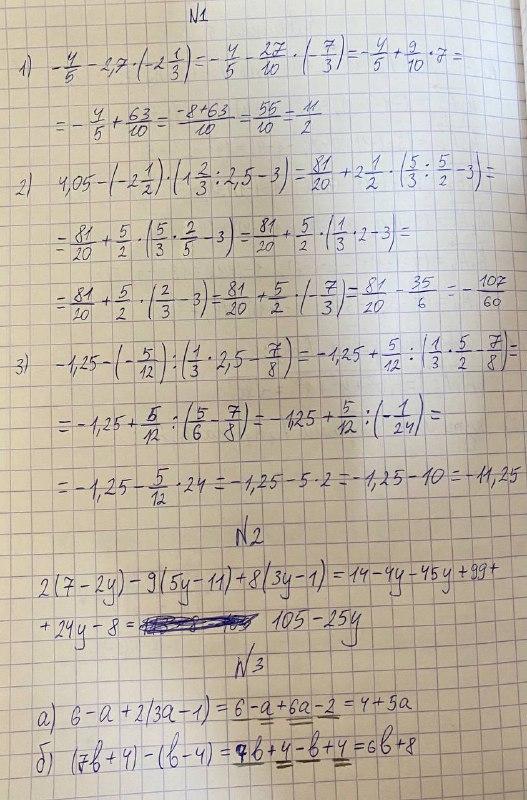 №1
1) -4/5 - 2,7 · (-2 1/3) = -4/5 - 27/10 · (-7/3) = -4/5 + 9/10 · 7 =
= -4/5 + 63/10 = (-8+63)/10 = 55/10 = 11/2
2) 4,05 - (-2 1/2) · (1 2/3 : 2,5 - 3) = 81/20 + 2 1/2 · (5/3 : 5/2 - 3) =
= 81/20 + 5/2 · (5/3 · 2/5 - 3) = 81/20 + 5/2 · (1/3 · 2 - 3) =
= 81/20 + 5/2 · (2/3 - 3) = 81/20 + 5/2 · (-7/3) = 81/20 - 35/6 = -107/60
3) -1,25 - (-5/12) : (1/3 · 2,5 - 7/8) = -1,25 + 5/12 : (1/3 · 5/2 - 7/8) =
= -1,25 + 5/12 : (5/6 - 7/8) = -1,25 + 5/12 : (-1/24) =
= -1,25 - 5/12 · 24 = -1,25 - 5 · 2 = -1,25 - 10 = -11,25
№2
2(7 - 2y) - 9(5y - 11) + 8(3y - 1) = 14 - 4y - 45y + 99 +
+ 24y - 8 = 105 - 25y
№3
а) 6 - a + 2(3a - 1) = 6 - a + 6a - 2 = 4 + 5a
б) (7b + 4) - (b - 4) = 7b + 4 - b + 4 = 6b + 8